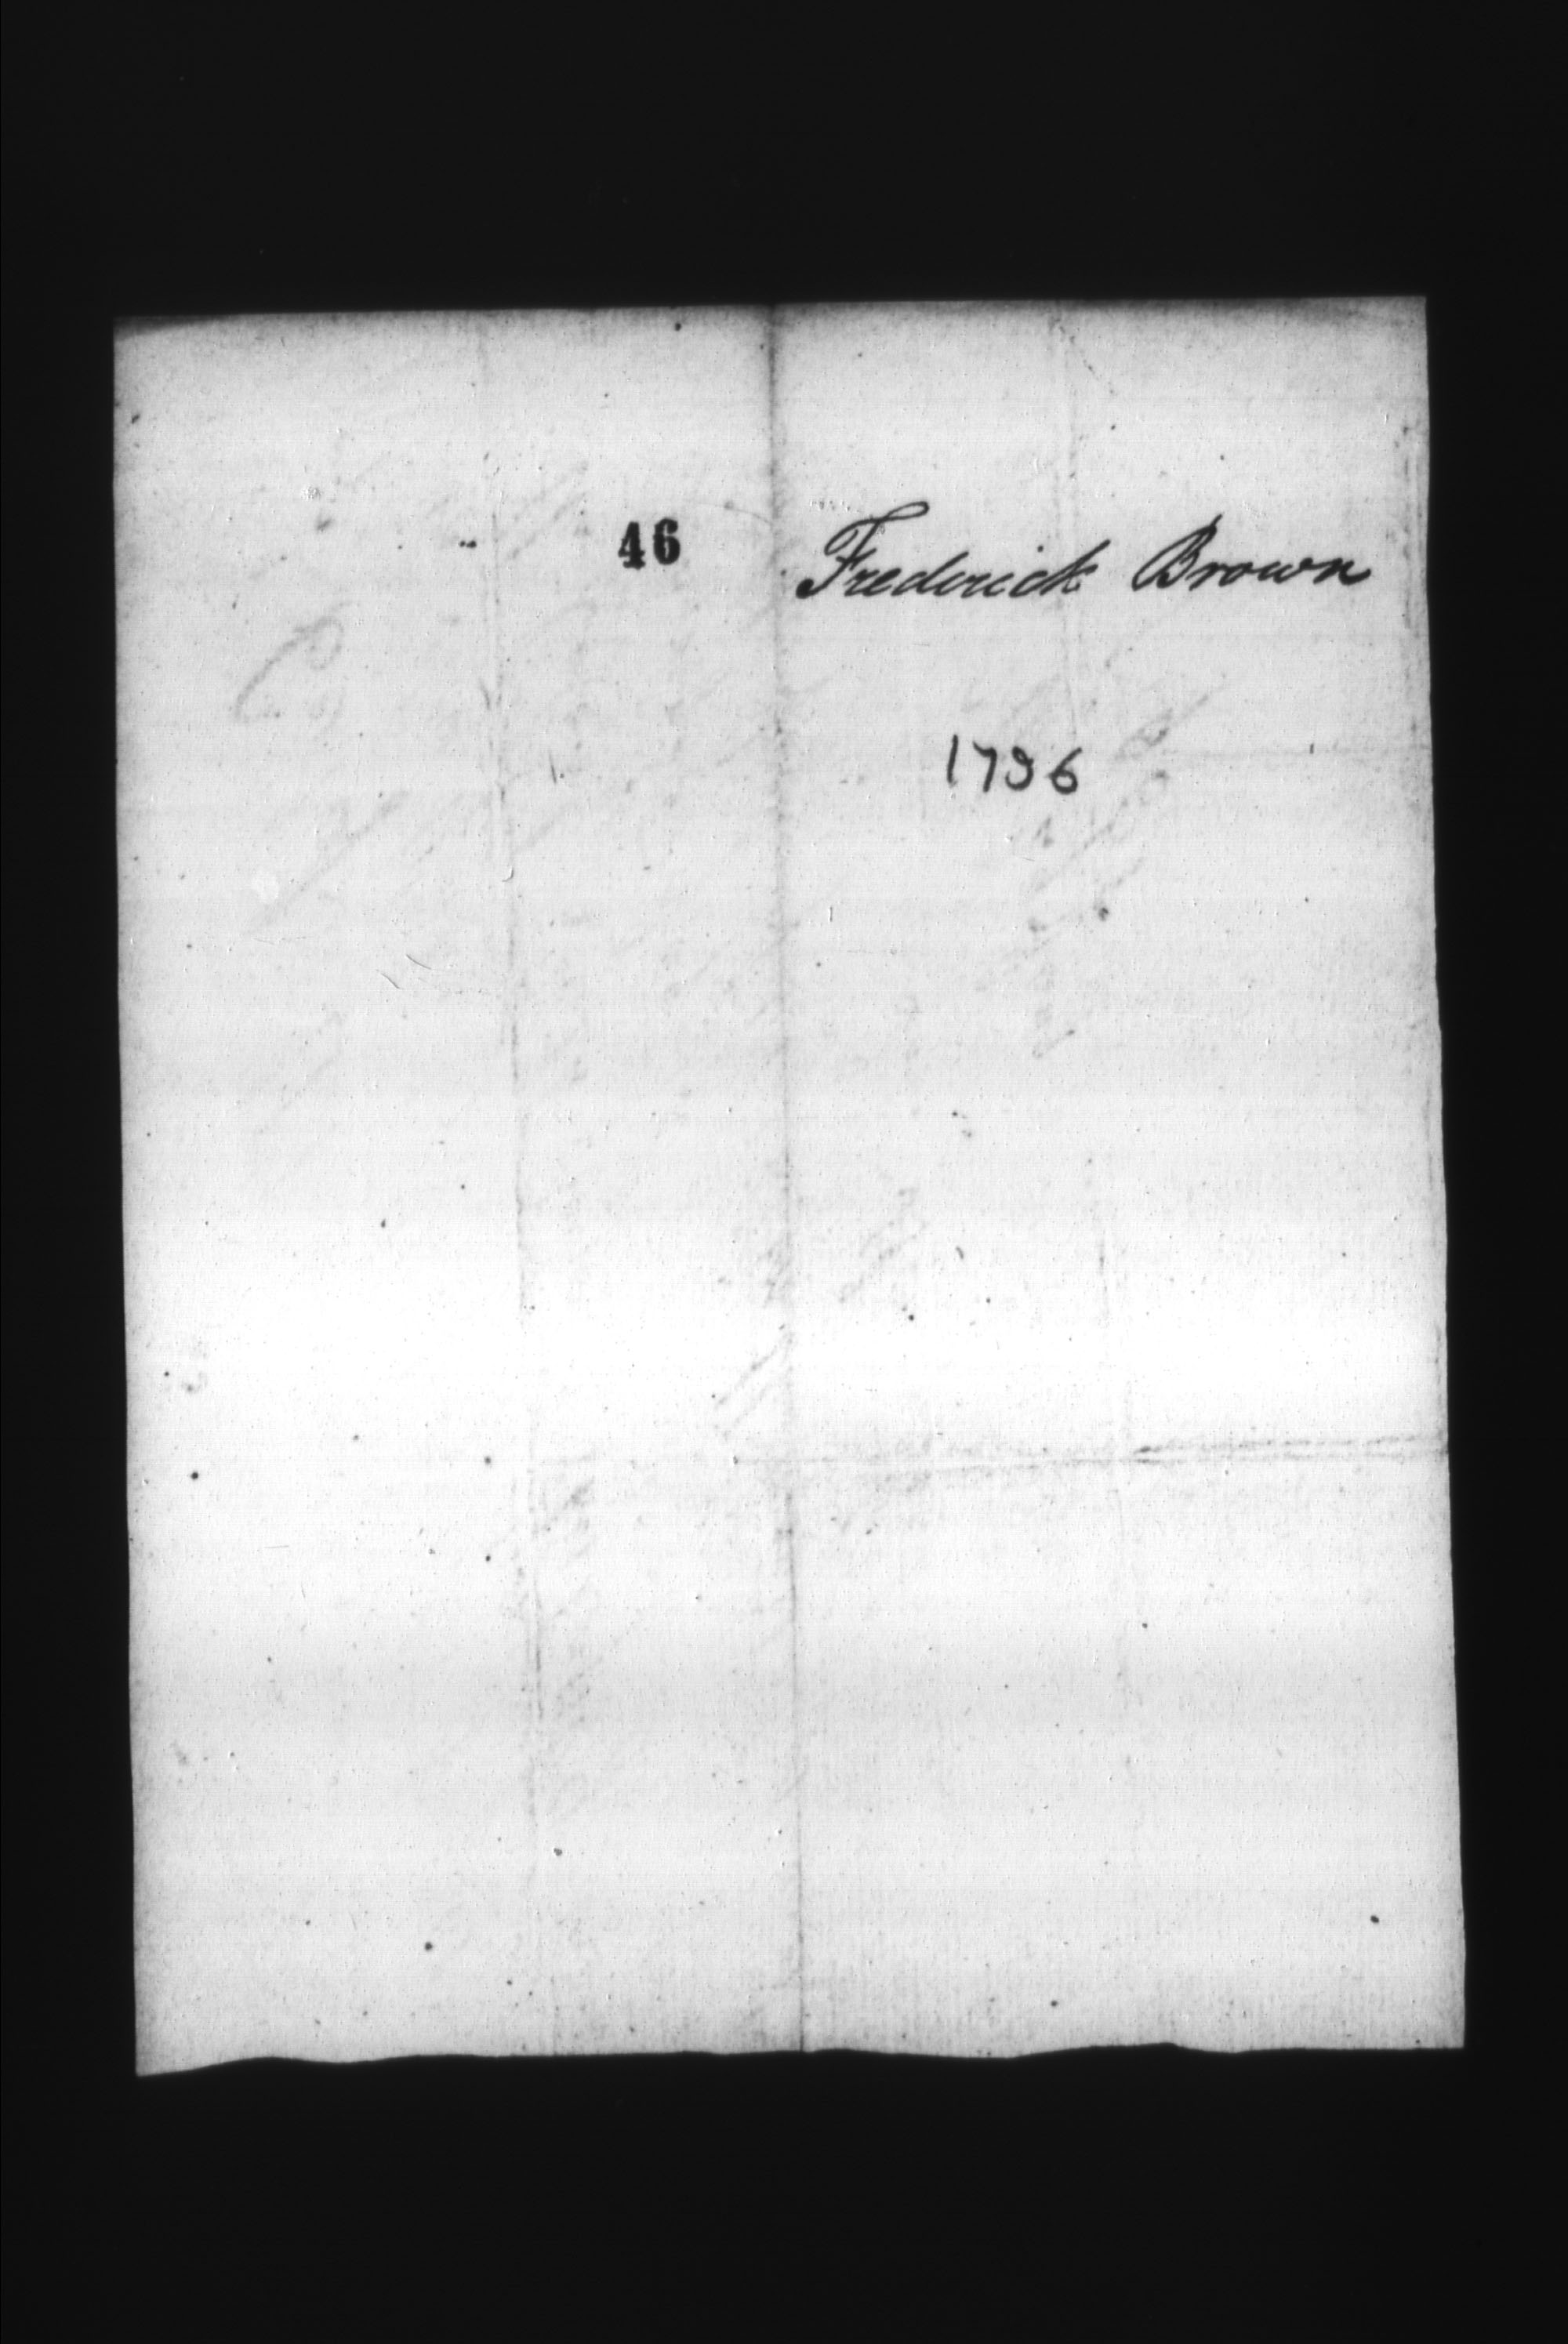 46
Frederick Brown
1796